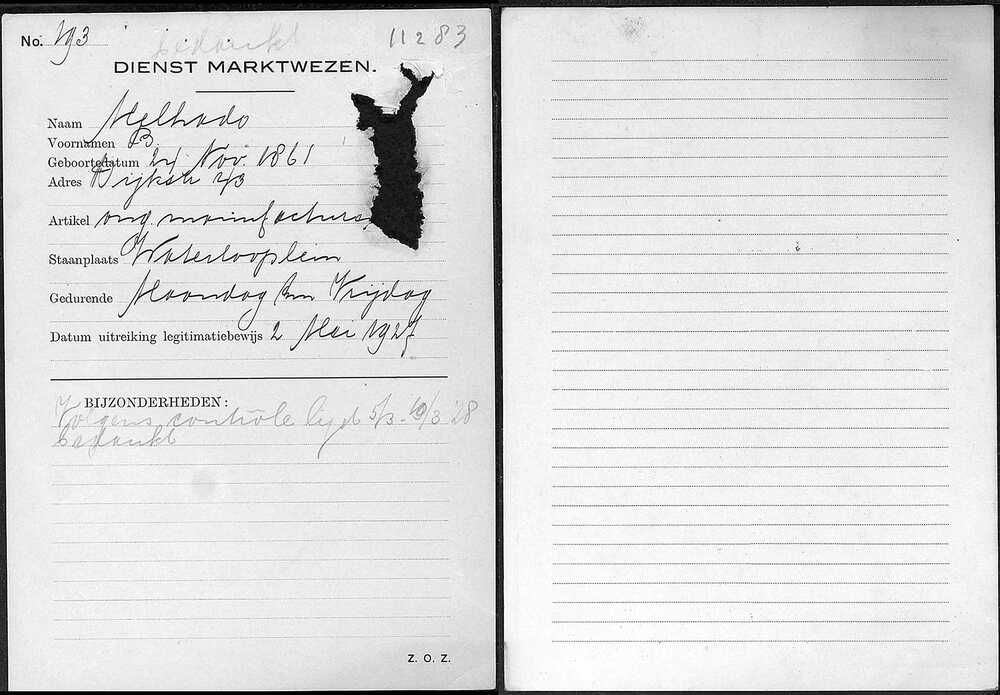 No. 193 bedankt 11283
DIENST MARKTWEZEN.
Naam Melhado
Voornamen B.
Geboortedatum 24 Nov. 1861
Adres Dijkstr 2/3
Artikel ong. manufacturen
Staanplaats Waterlooplein
Gedurende Maandag t/m Vrijdag
Datum uitreiking legitimatiebewijs 2 Mei 1927
BIJZONDERHEDEN:
Volgens contrôle lijst 5/3 - 10/3 '28
bedankt
Z. O. Z.